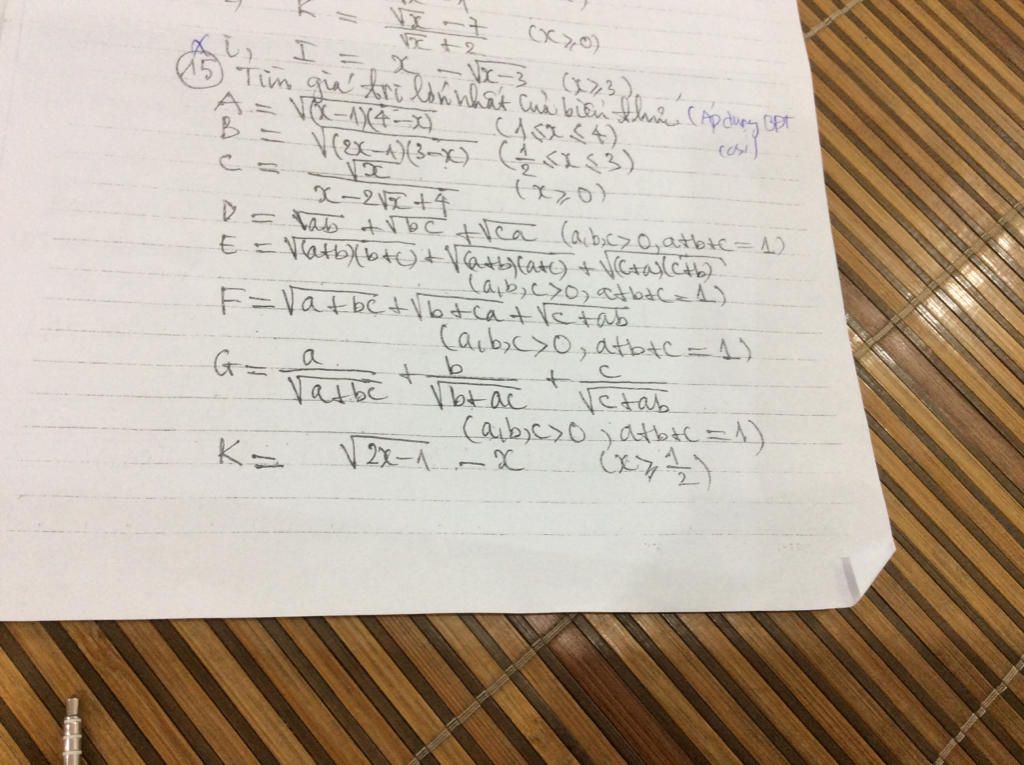 K = (√x − 7)/(√x + 2) (x ≥ 0)
i, I = x − √(x−3) (x ≥ 3)
(15) Tìm giá trị lớn nhất của biểu thức (Áp dụng BĐT cosi)
A = √((x−1)(4−x)) (1 ≤ x ≤ 4)
B = √((2x−1)(3−x)) (1/2 ≤ x ≤ 3)
C = √x/(x − 2√x + 4) (x ≥ 0)
D = √ab + √bc + √ca (a,b,c>0, a+b+c = 1)
E = √((a+b)(b+c)) + √((a+b)(a+c)) + √((c+a)(c+b))
(a,b,c >0, a+b+c = 1)
F = √(a+bc) + √(b+ca) + √(c+ab)
(a,b,c>0, a+b+c = 1)
G = a/√(a+bc) + b/√(b+ac) + c/√(c+ab)
(a,b,c>0; a+b+c = 1)
K = √(2x−1) − x (x ≥ 1/2)